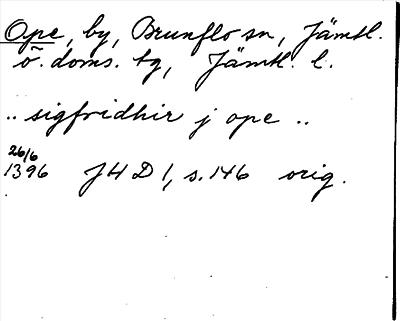 Ope, by, Brunflo sn, Jämtl.
ö. doms. tg, Jämtl. l.
.. sigfridhir j ope ..
26/6
1396 JHD 1, s. 146 orig.